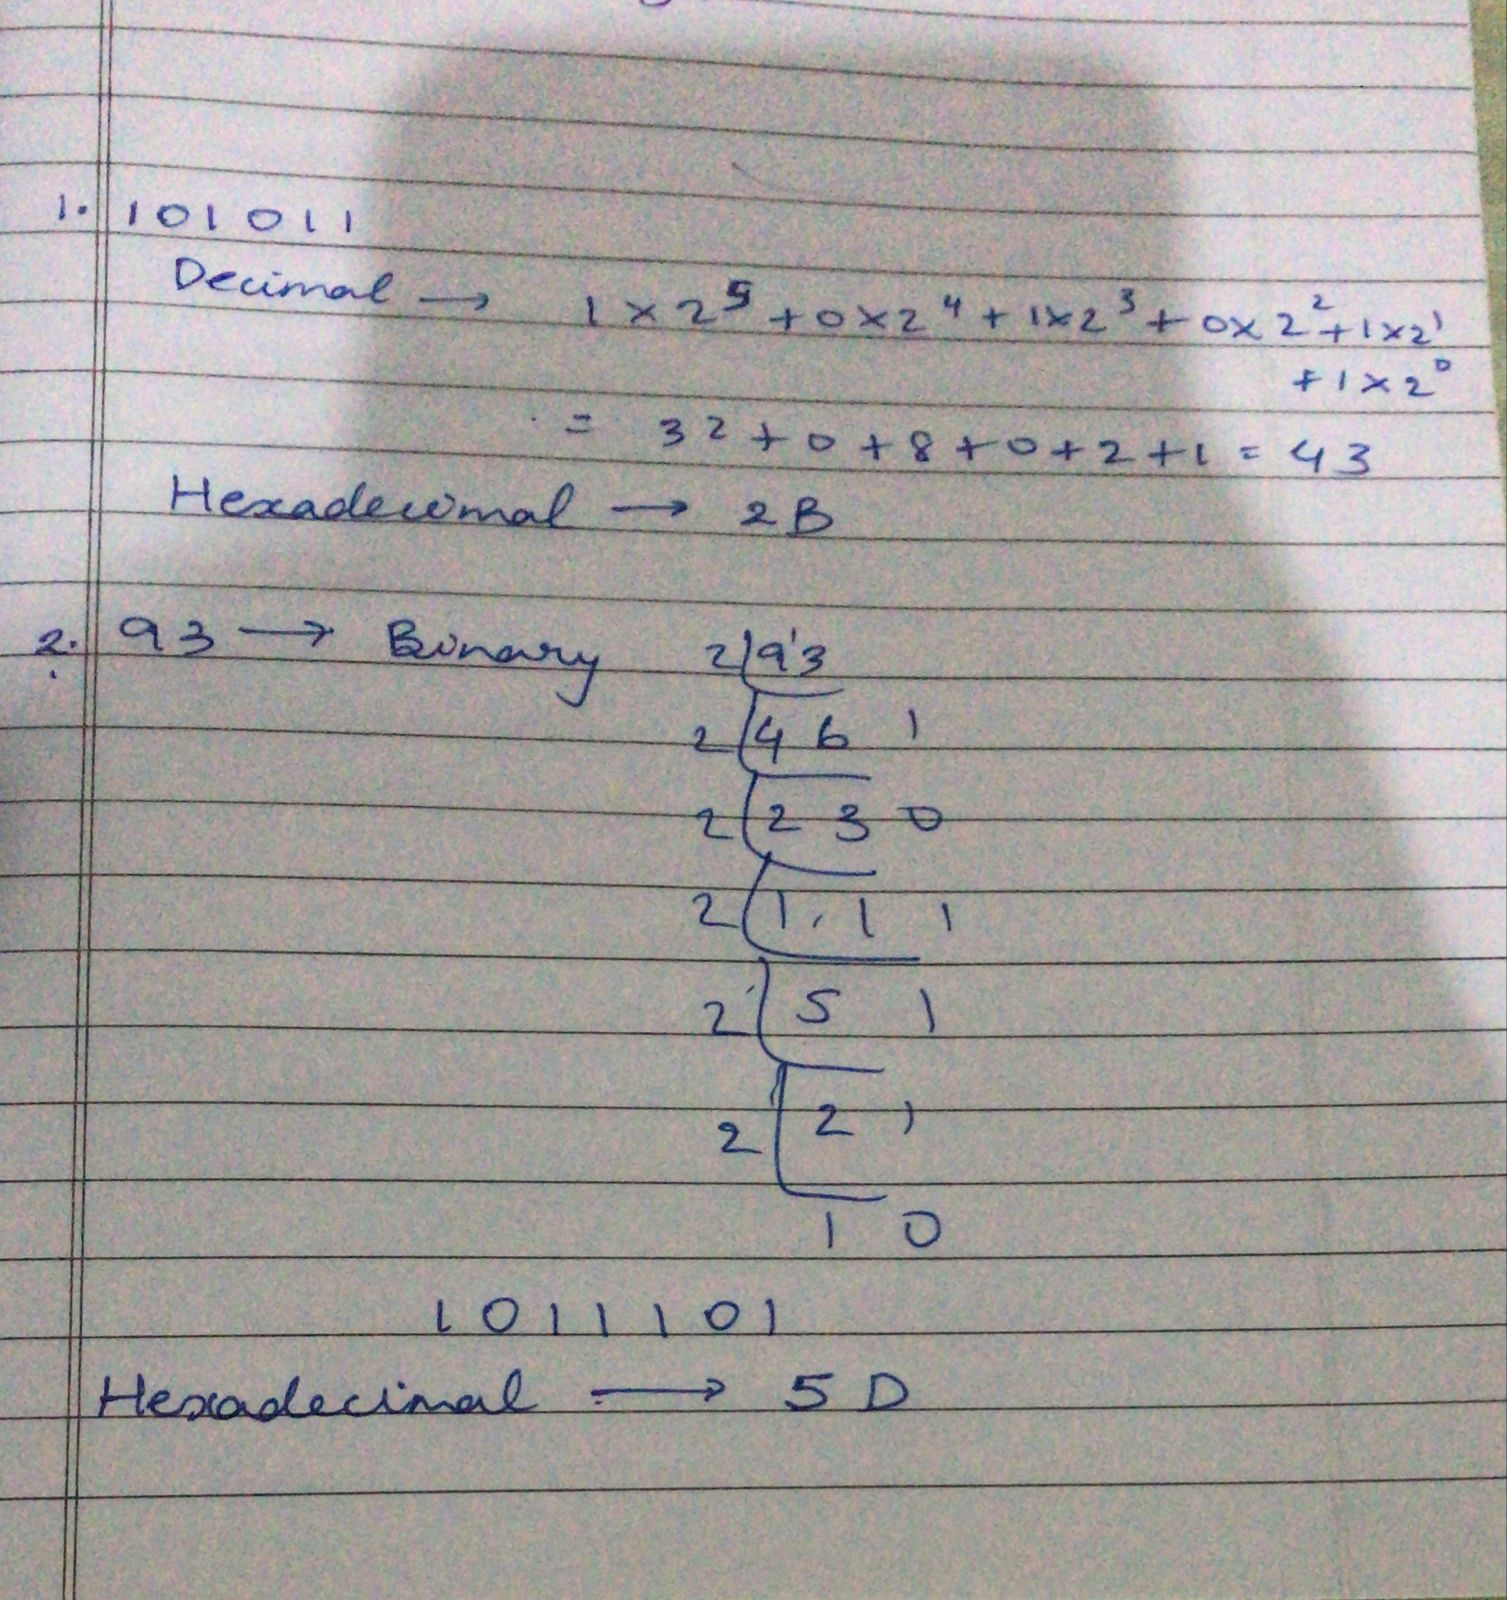 1. 101011
Decimal → 1 × 2⁵ + 0 × 2⁴ + 1 × 2³ + 0 × 2² + 1 × 2¹
+ 1 × 2⁰
= 32 + 0 + 8 + 0 + 2 + 1 = 43
Hexadecimal → 2B
2. 93 → Binary 2 93
2 46 1
2 23 0
2 11 1
2 5 1
2 2 1
1 0
1011101
Hexadecimal → 5D